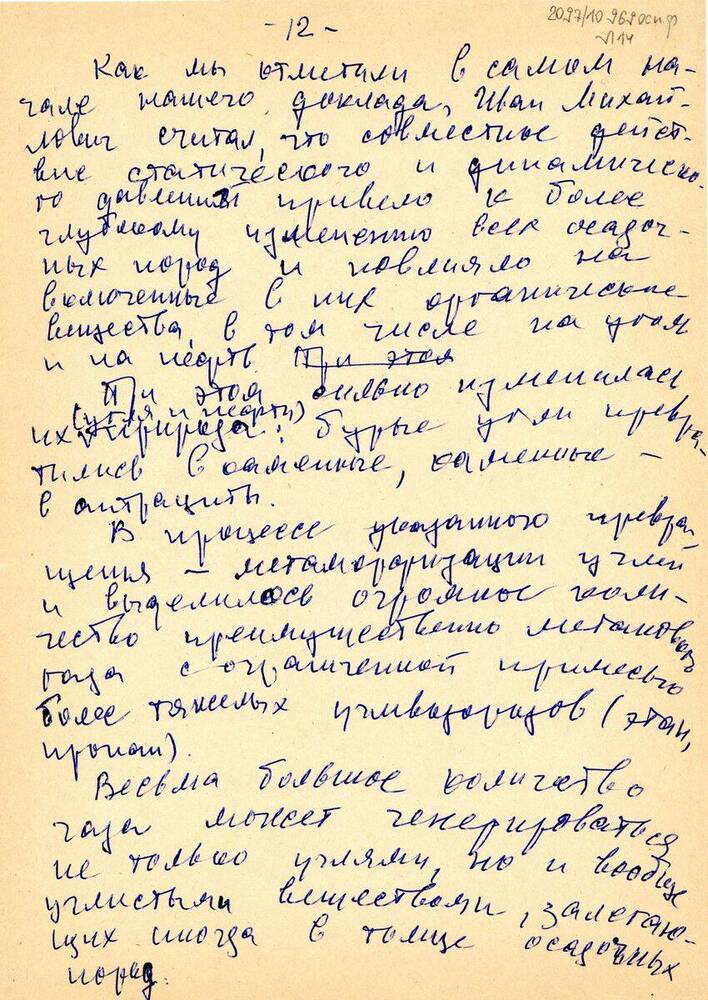 - 12 -
Как мы отметили в самом на-
чале нашего доклада, Иван Михай-
лович считал, что совместное дейст-
вие статического и динамическо-
го давлений привело к более
глубокому изменению всех осадоч-
ных пород и повлияло на
включенные в них органические
вещества, в том числе на угли
и на нефть. При этом
При этом сильно изменилась
(угля и нефти)
их природа: бурые угли превра-
тились в каменные, каменные –
в антрациты.
В процессе указанного превра
щения – метаморфизации углей
и выделилось огромное коли-
чество преимущественно метанового
газа с ограниченной примесью
более тяжелых углеводородов (этан,
пропан).
Весьма большое количество
газа может генерироваться
не только углями, но и вообще
углистыми веществами, залегаю-
щих иногда в толще осадочных
пород.